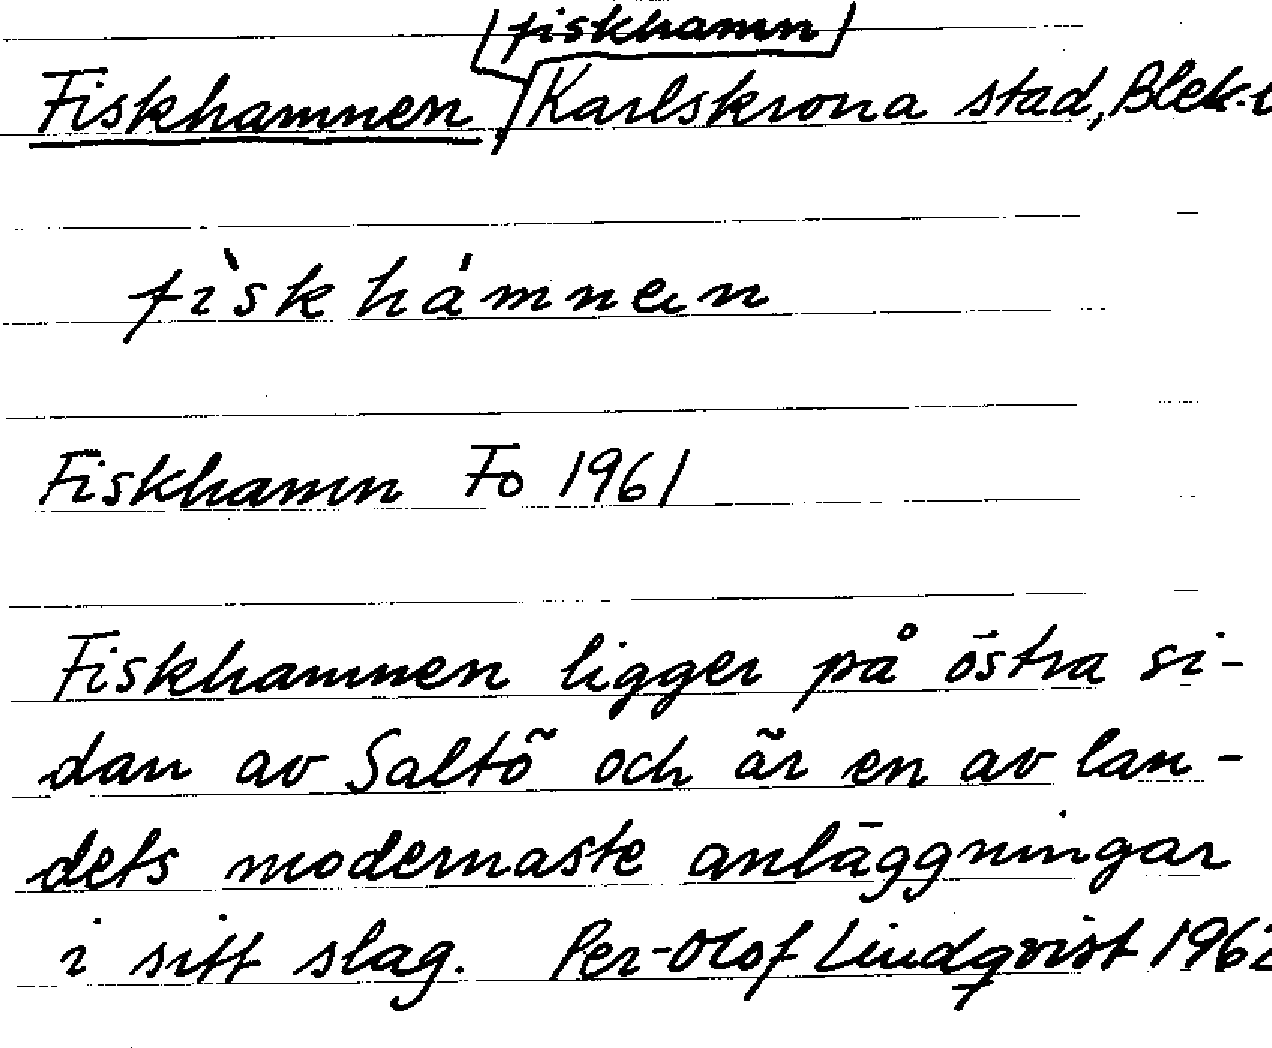 fiskhamn
Fiskhamnen, Karlskrona stad, Blek.
fìskhámnen
Fiskhamn Fo 1961
Fiskhamnen ligger på östra si-
dan av Saltö och är en av lan-
dets modernaste anläggningar
i sitt slag. Per-Olof Lindqvist 1962